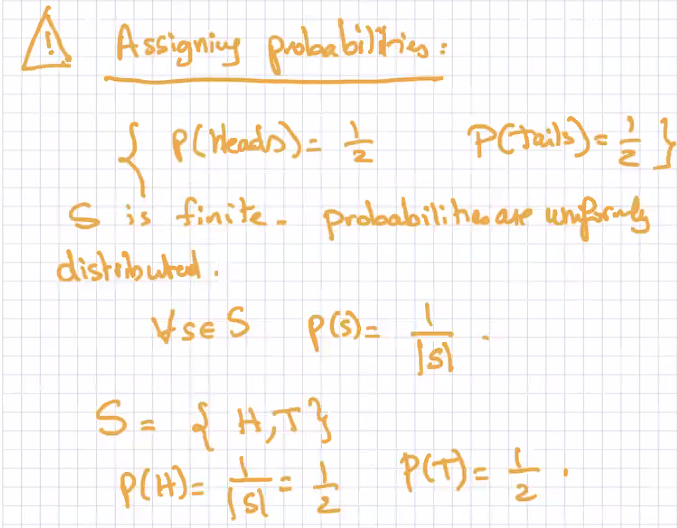 ! Assigning probabilities:
{ P(Heads) = 1/2 P(tails) = 1/2 }
S is finite. probabilities are uniformly
distributed.
∀s∈S P(s) = 1/|S| .
S = { H,T }
P(H) = 1/|S| = 1/2 P(T) = 1/2 .